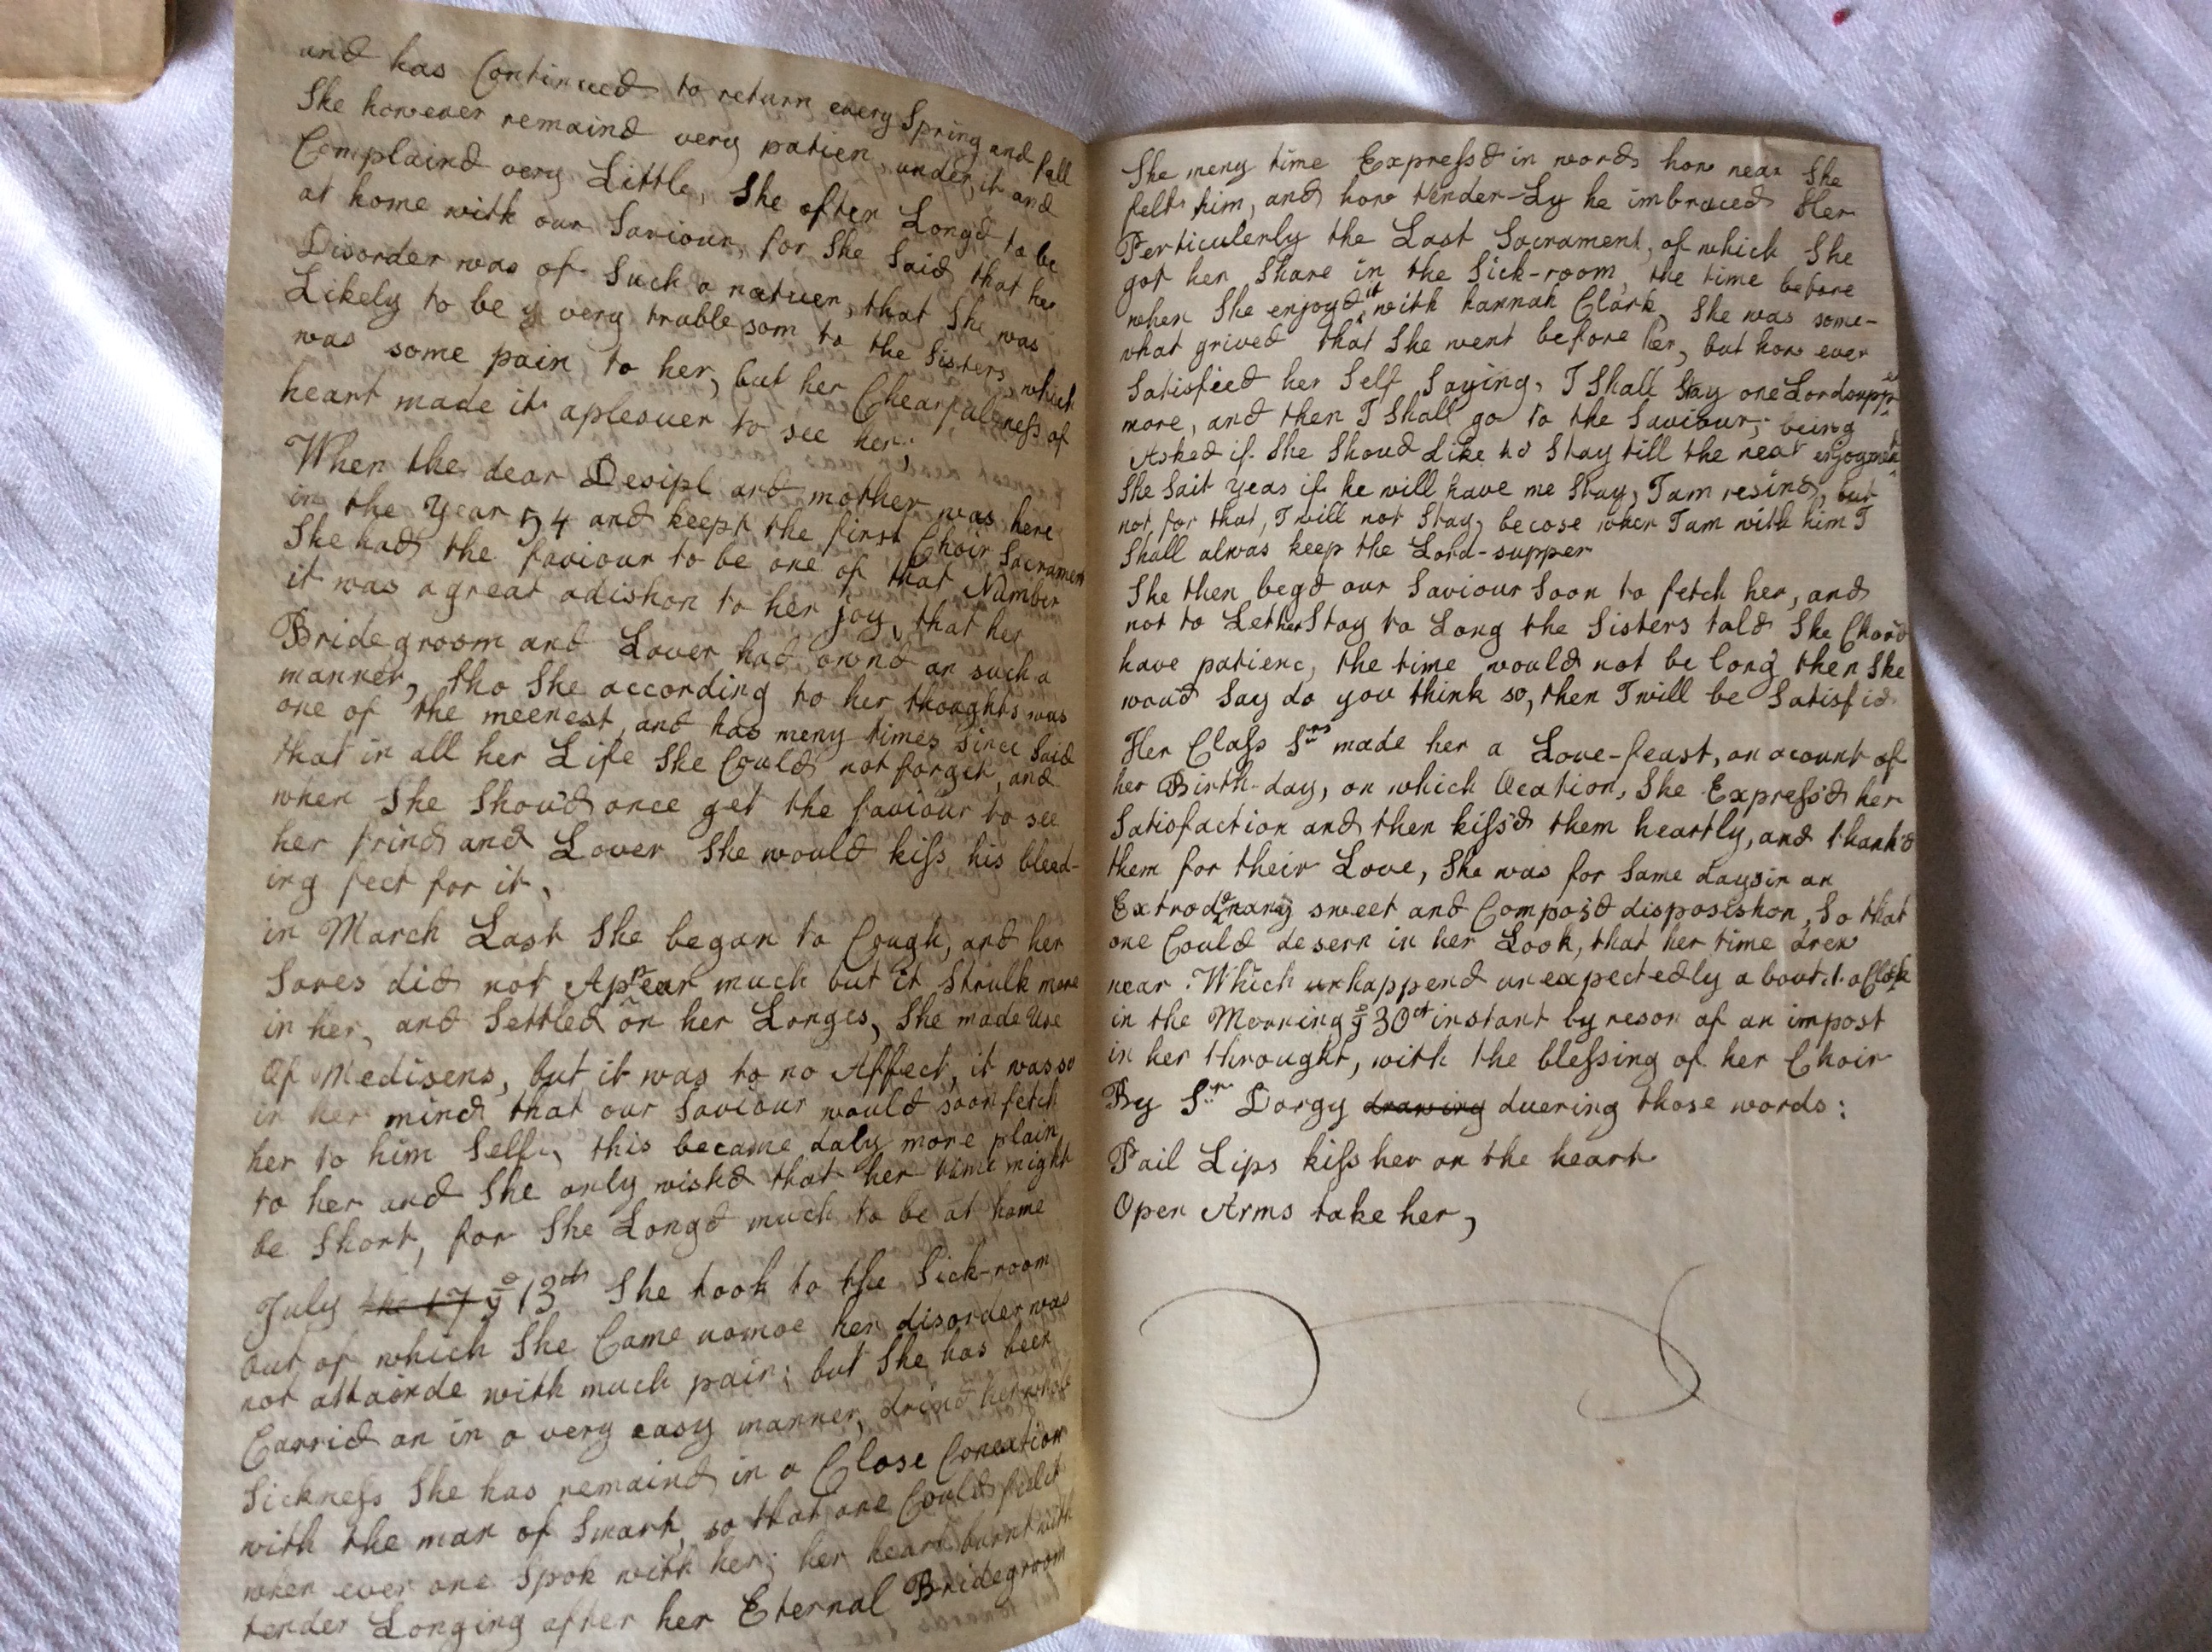 and has Continued to return every Spring and fall
She however remaind very patien under it and
Complaind very Little, She often Longd to be
at home with our Saviour, for She Said that her
Disorder was of Such a natuer, that She was
Likely to be very truble som to the Sisters which
was some pain to her, but her Chearfulness of
heart made it aplesuer to see her;
When the dear Desipl and mother was here
in the year 54 and keept the first Choir Sacramen
She had the faviour to be one of that Number
it was a great adishon to her joy, that her
Bridegroom and Lover had ownd an such a
manner, tho She according to her thoughts was
one of the meenest, and has meny times Since Said
that in all her Life She Could not forget, and
when She Shou'd once get the faviour to see
her frind and Lover She would kiss his bleed-
ing feet for it,
in March Last She began to Cough, and her
Sores did not Apear much but it Strulk more
in her, and Settled on her Longes, She made Use
Of Medisens, but it was to no Affect, it was so
in her mind that our Saviour would soon fetch
her to him Self, this became daly more plain
to her and She only wishd that her time might
be Short, for She Longd much to be at home
July the 17 ye 13th She took to the Sick-room
Out of which She Came nomoe her disorder was
not attainde with much pain; but She has been
Carrid on in a very easy manner, driud her whole
Sickness She has remaind in a Close Conextion
with the man of Smart, so that one Could feel it
when ever one Spok with her; her heart burnt with
tender Longing after her Eternal Bridegroom
She meny time Express'd in words how near She
felt him, and how tender-Ly he imbraced Her
Perticulerly the Last Sacrament, of which She
got her Share in the Sick-room, the time before
when She enjoyd it with hannah Clark, She was some-
what grived that She went before her, but how ever
Satisfied her Self Saying, I Shall Stay one Lordsupper
more, and then I Shall go to the Saviour; being
Asked if She Shoud Like to Stay till the next enjoyment
She Sait yeas if he will have me Stay, I am resind, but
not for that, I will not Stay, becose when I am with him I
Shall alwas keep the Lord-supper
She then begd our Saviour Soon to fetch her, and
not to Let her Stay to Long the Sisters told She Choud
have patienc, the time would not be long then She
woud Say do you think so, then I will be Satisfid
Her Class Srs made her a Love-feast, on acount of
her Birth-day, on which Ocation, She Express'd her
Satisfaction and then kiss'd them heartly, and thank'd
them for their Love, She was for Some days in an
Extrodenary sweet and Compos'd disposishon, So that
one Could desern in her Look, that her time drew
near. Which unhappend unexpectedly a bout 1 a Clok
in the Morning ye 30th instant by reson of an impost
in her throught, with the blessing of her Choir
By Sr Dorgy drawing duering those words:
Pail Lips kiss her on the heart
Open Arms take her,